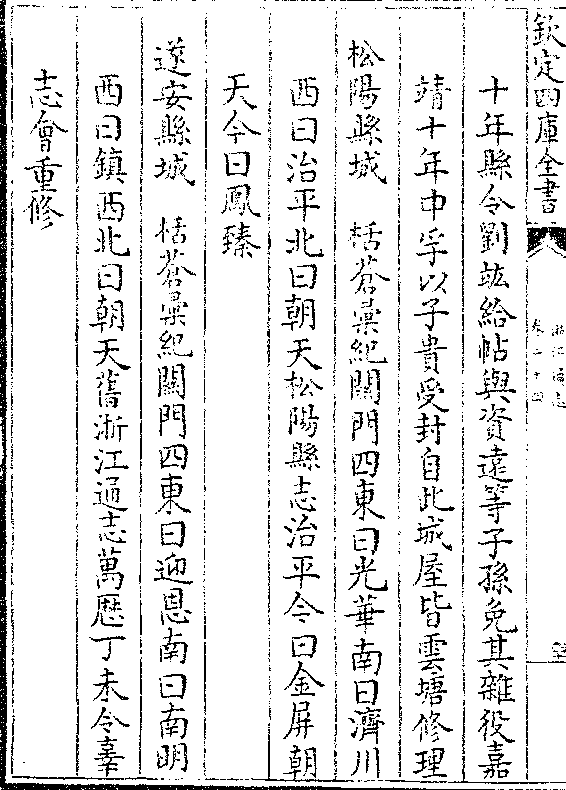 欽定四庫全書
浙江通志
卷二十四
十年縣令劉竑給帖與資遠等子孫免其雜役嘉
靖十年中孚以子貴受封自此城屋皆雲塘修理
松陽縣城　栝蒼彚紀闗門四東曰光華南曰濟川
西曰治平北曰朝天松陽縣志治平今曰金屏朝
天今曰鳳臻
遂安縣城　栝蒼彚紀闗門四東曰迎恩南曰南明
西曰鎮西北曰朝天舊浙江通志萬厯丁未令辜
志㑹重修